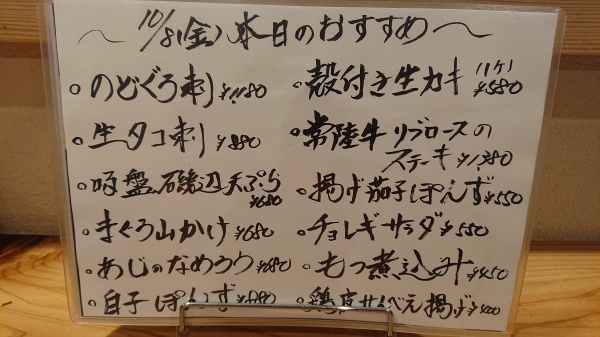 ～10/8(金)本日のおすすめ～
。のどぐろ刺 ¥1,180
。生タコ刺 ¥880
。吸盤磯辺天ぷら ¥680
。まぐろ山かけ ¥680
。あじのなめろう ¥680
。白子ぽんず ¥880
。殻付き生カキ (1ケ) ¥580
。常陸牛リブロースの
ステーキ ¥1,380
。揚げ茄子ぽんず ¥550
。チョレギサラダ ¥550
。もつ煮込み ¥450
。鶏皮せんべえ揚げ ¥400